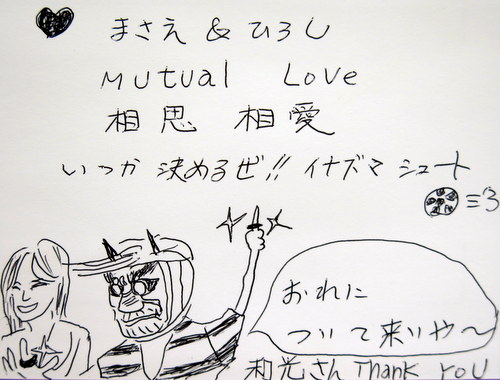 まさえ & ひろし
Mutual Love
相思 相愛
いつか 決めるぜ!! イナズマ シュート
おれに
ついて来いや〜
和光さん Thank You